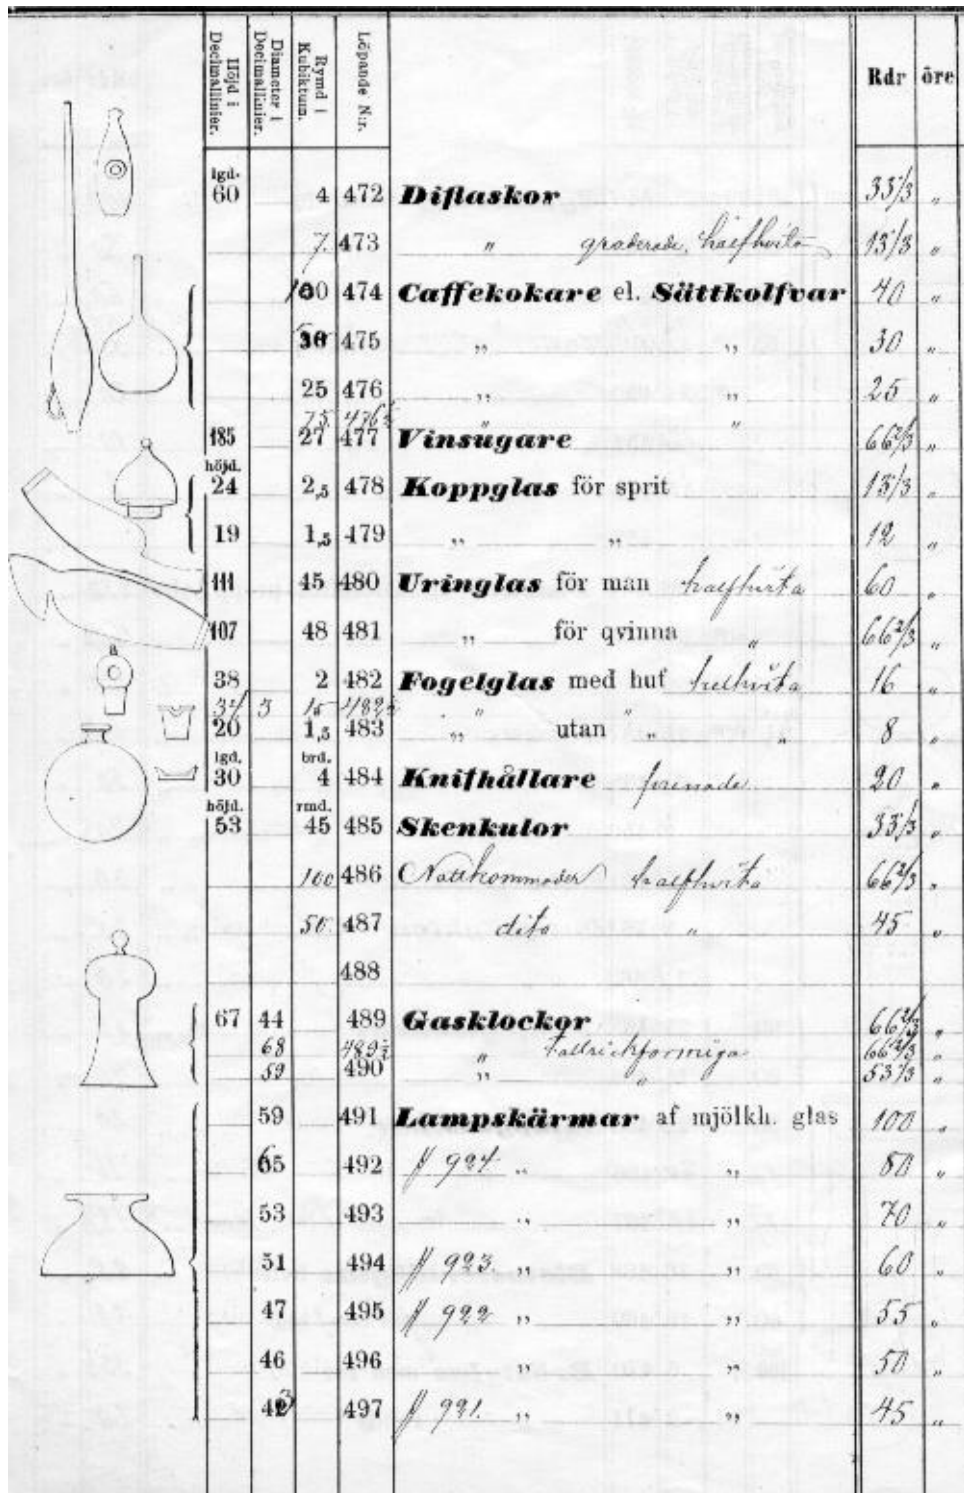 Höjd i Decimallinier. Diameter i Decimallinier. Rymd i Kubiktum. Löpande N:r. Rdr öre
lgd.
60 4 472 Diflaskor 33 1/3 „
7. 473 „ graderade, halfhvita 13 1/3 „
100 474 Caffekokare el. Sättkolfvar 40 „
30 475 „ „ 30 „
25 476 „ „ 25 „
75 476½ „ „
185 27 477 Vinsugare 66 2/3 „
höjd.
24 2,5 478 Koppglas för sprit 13 1/3 „
19 1,5 479 „ „ 12 „
111 45 480 Uringlas för man halfhvita 60 „
107 48 481 „ för qvinna „ 66 2/3 „
38 2 482 Fogelglas med huf helhvita 16 „
32 3 15 482½ „ „
20 1,5 483 „ utan „ „ 8 „
lgd. brd.
30 4 484 Knifhållare 20 „
höjd. rmd.
53 45 485 Skenkulor 33 1/3 „
100 486 Nattkommoder halfhvita 66 2/3 „
50. 487 dito „ 45 „
488
67 44 489 Gasklockor 66 2/3 „
68 489½ „ tallrickformiga 66 2/3 „
59 490 „ „ 53 1/3 „
59 491 Lampskärmar af mjölkh. glas 100 „
65 492 // 924 „ „ 80 „
53 493 „ „ 70 „
51 494 // 923. „ „ 60 „
47 495 // 922 „ „ 55 „
46 496 „ „ 50 „
43 497 // 921. „ „ 45 „